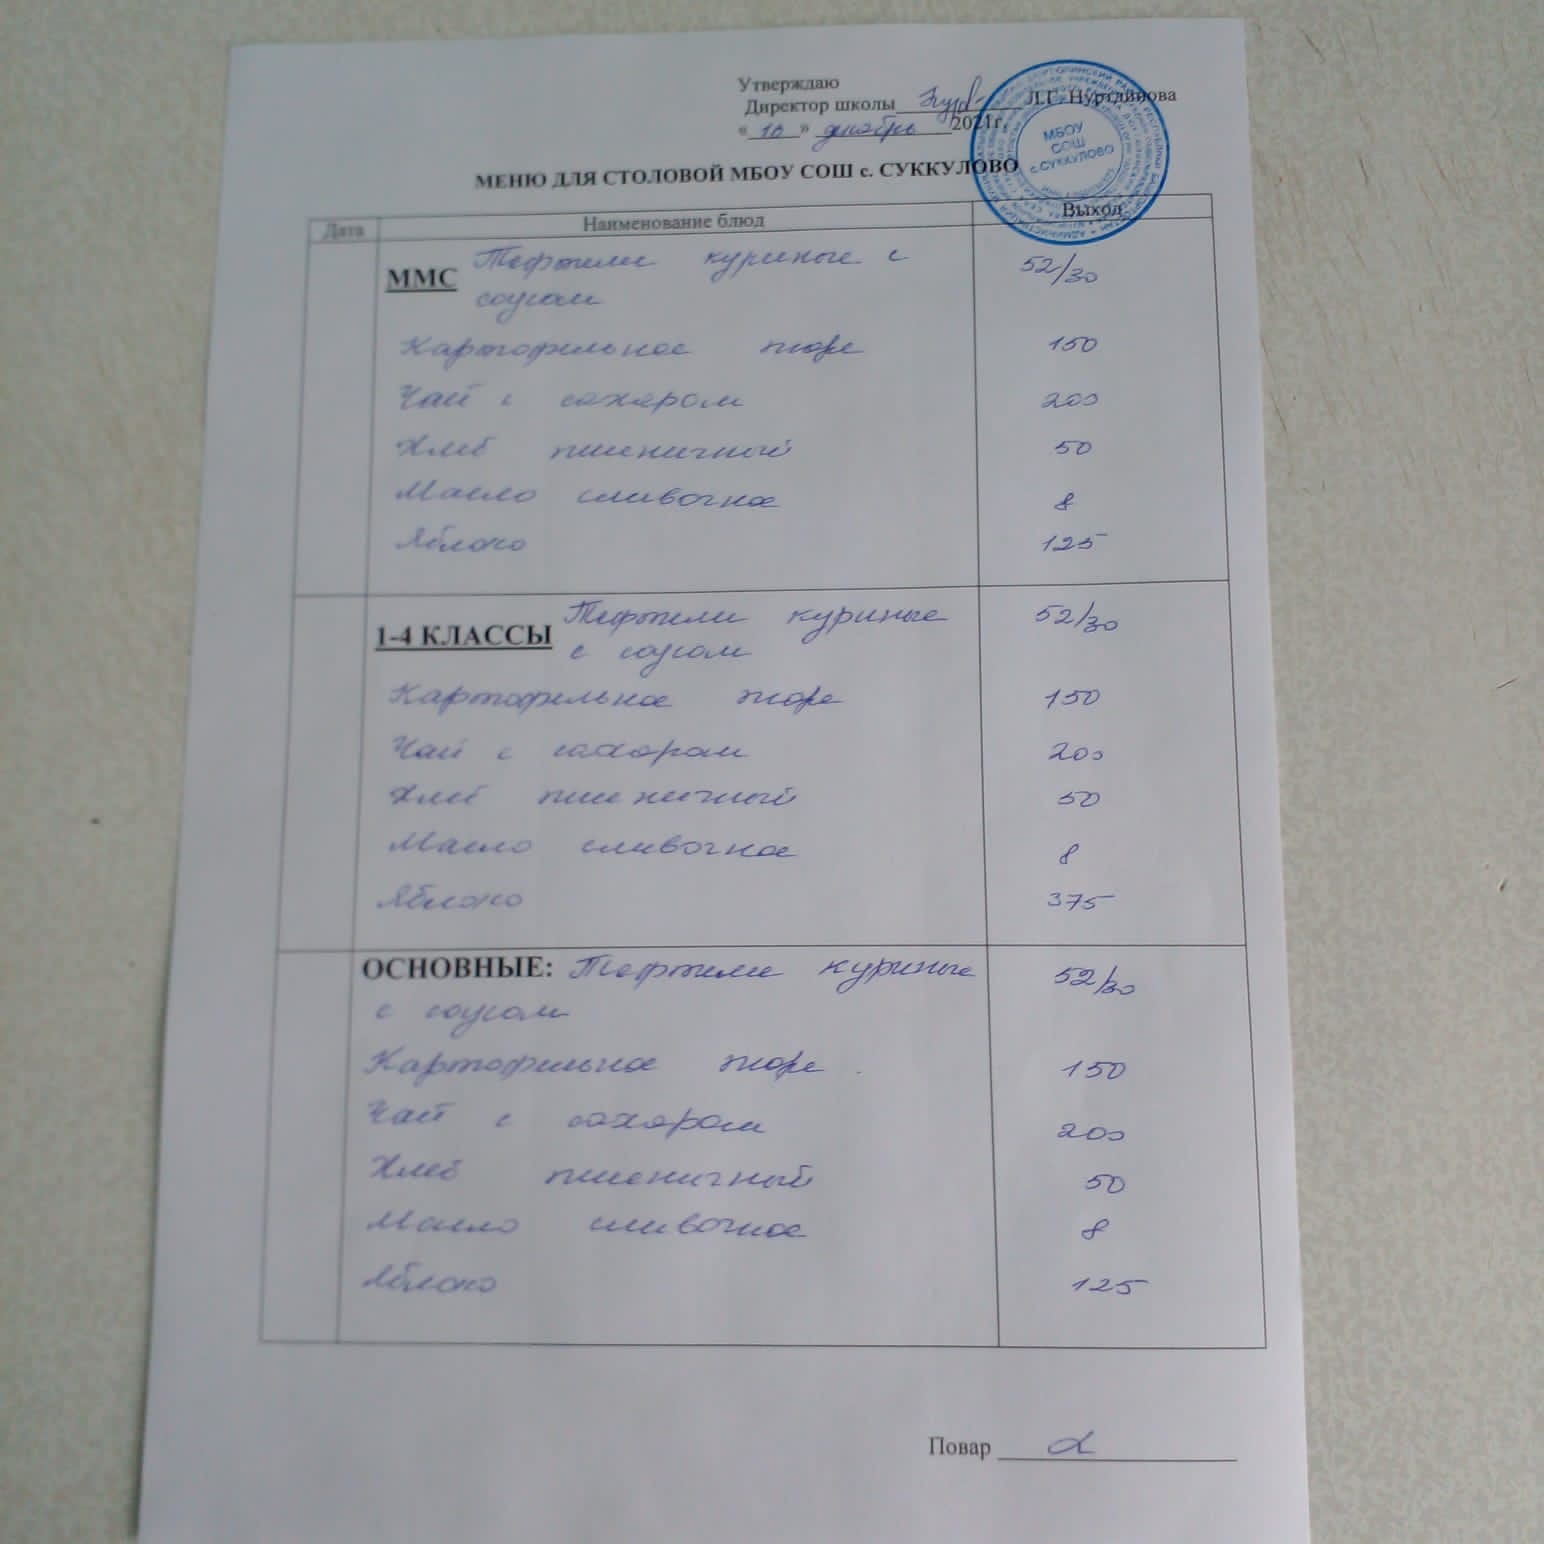 Утверждаю
Директор школы Л.Г. Нуртдинова
« 10 » декабрь 2021г.
МБОУ
СОШ
с.СУККУЛОВО
МЕНЮ ДЛЯ СТОЛОВОЙ МБОУ СОШ с. СУККУЛОВО
Дата Наименование блюд Выход
ММС Тефтели куриные с 52/30
соусом
Картофельное пюре 150
Чай с сахаром 200
Хлеб пшеничный 50
Масло сливочное 8
Яблоко 125
1-4 КЛАССЫ Тефтели куриные 52/30
с соусом
Картофельное пюре 150
Чай с сахаром 200
Хлеб пшеничный 50
Масло сливочное 8
Яблоко 375
ОСНОВНЫЕ: Тефтели куриные 52/30
с соусом
Картофельное пюре 150
Чай с сахаром 200
Хлеб пшеничный 50
Масло сливочное 8
Яблоко 125
Повар